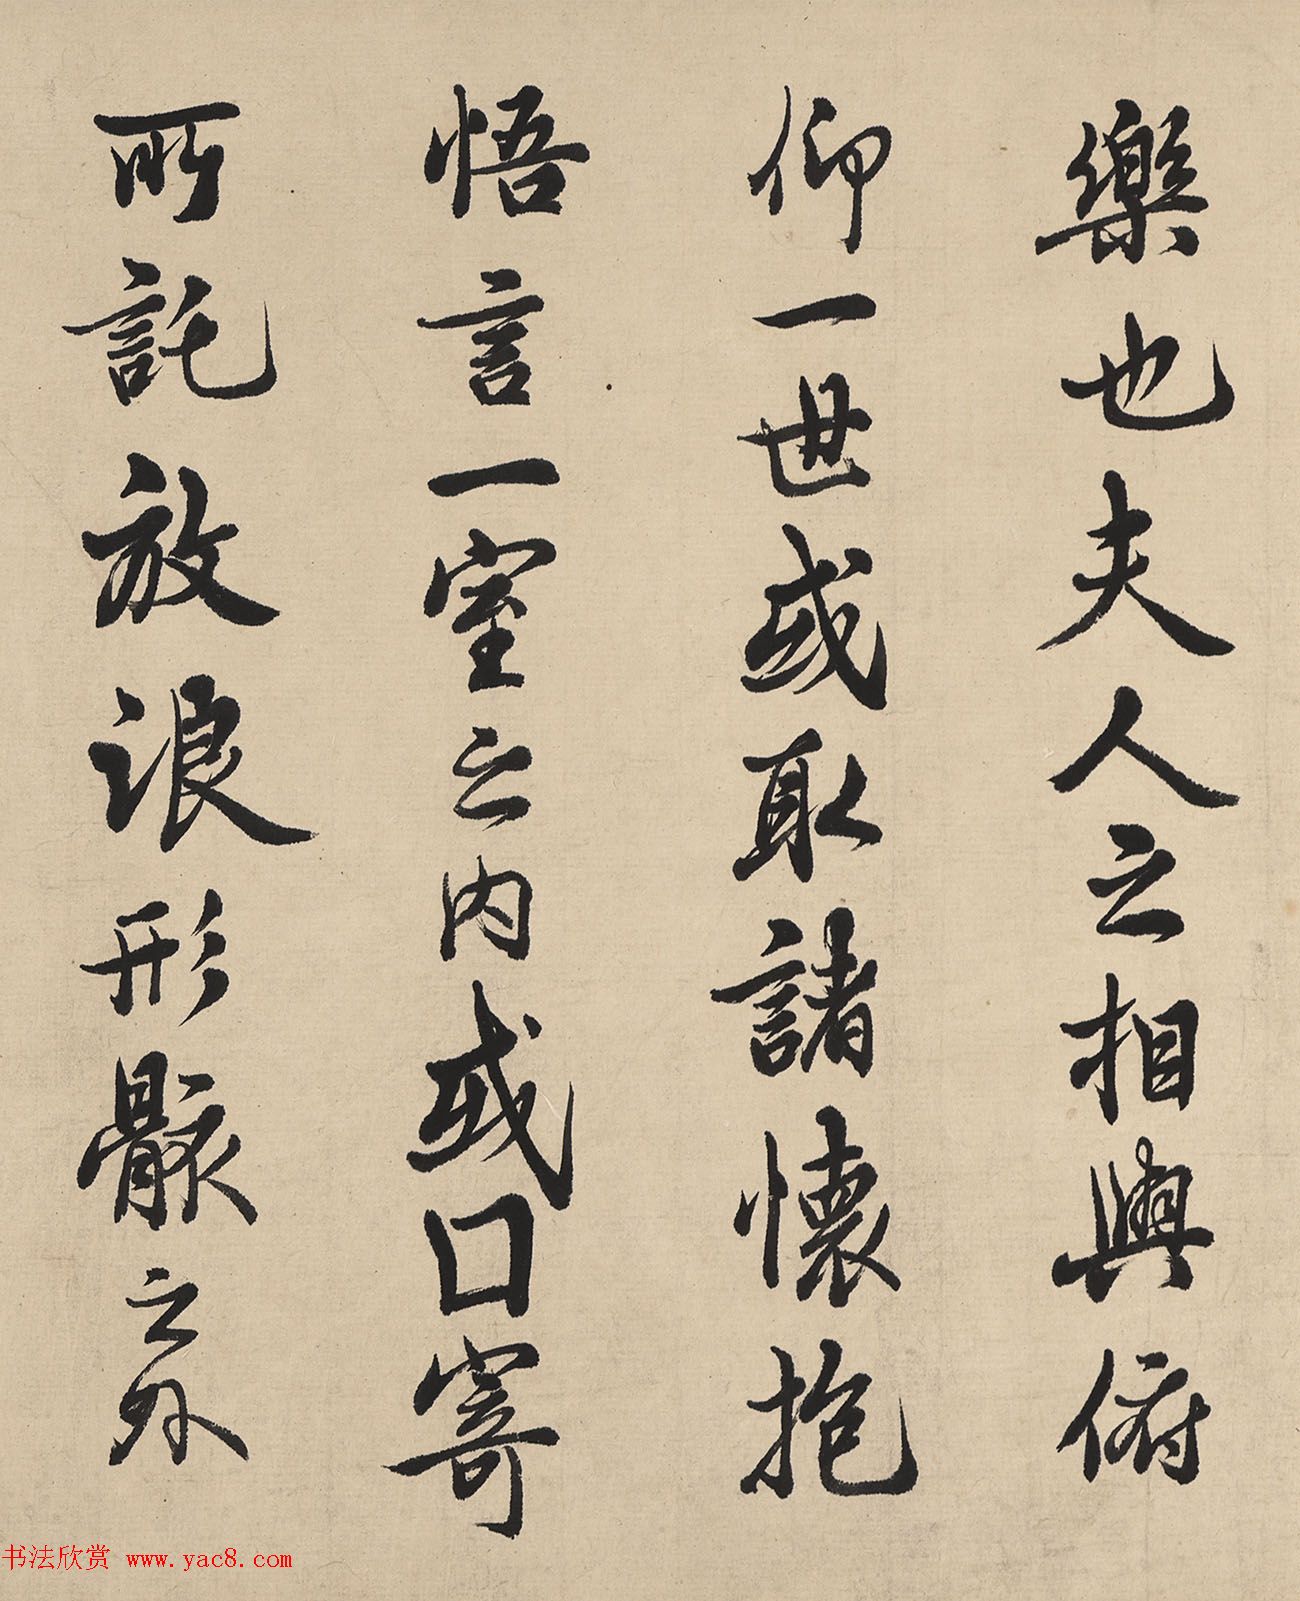 樂也夫人之相與俯
仰一世或取諸懷抱
悟言一室之內或口寄
所託放浪形骸之外
书法欣赏 www.yac8.com